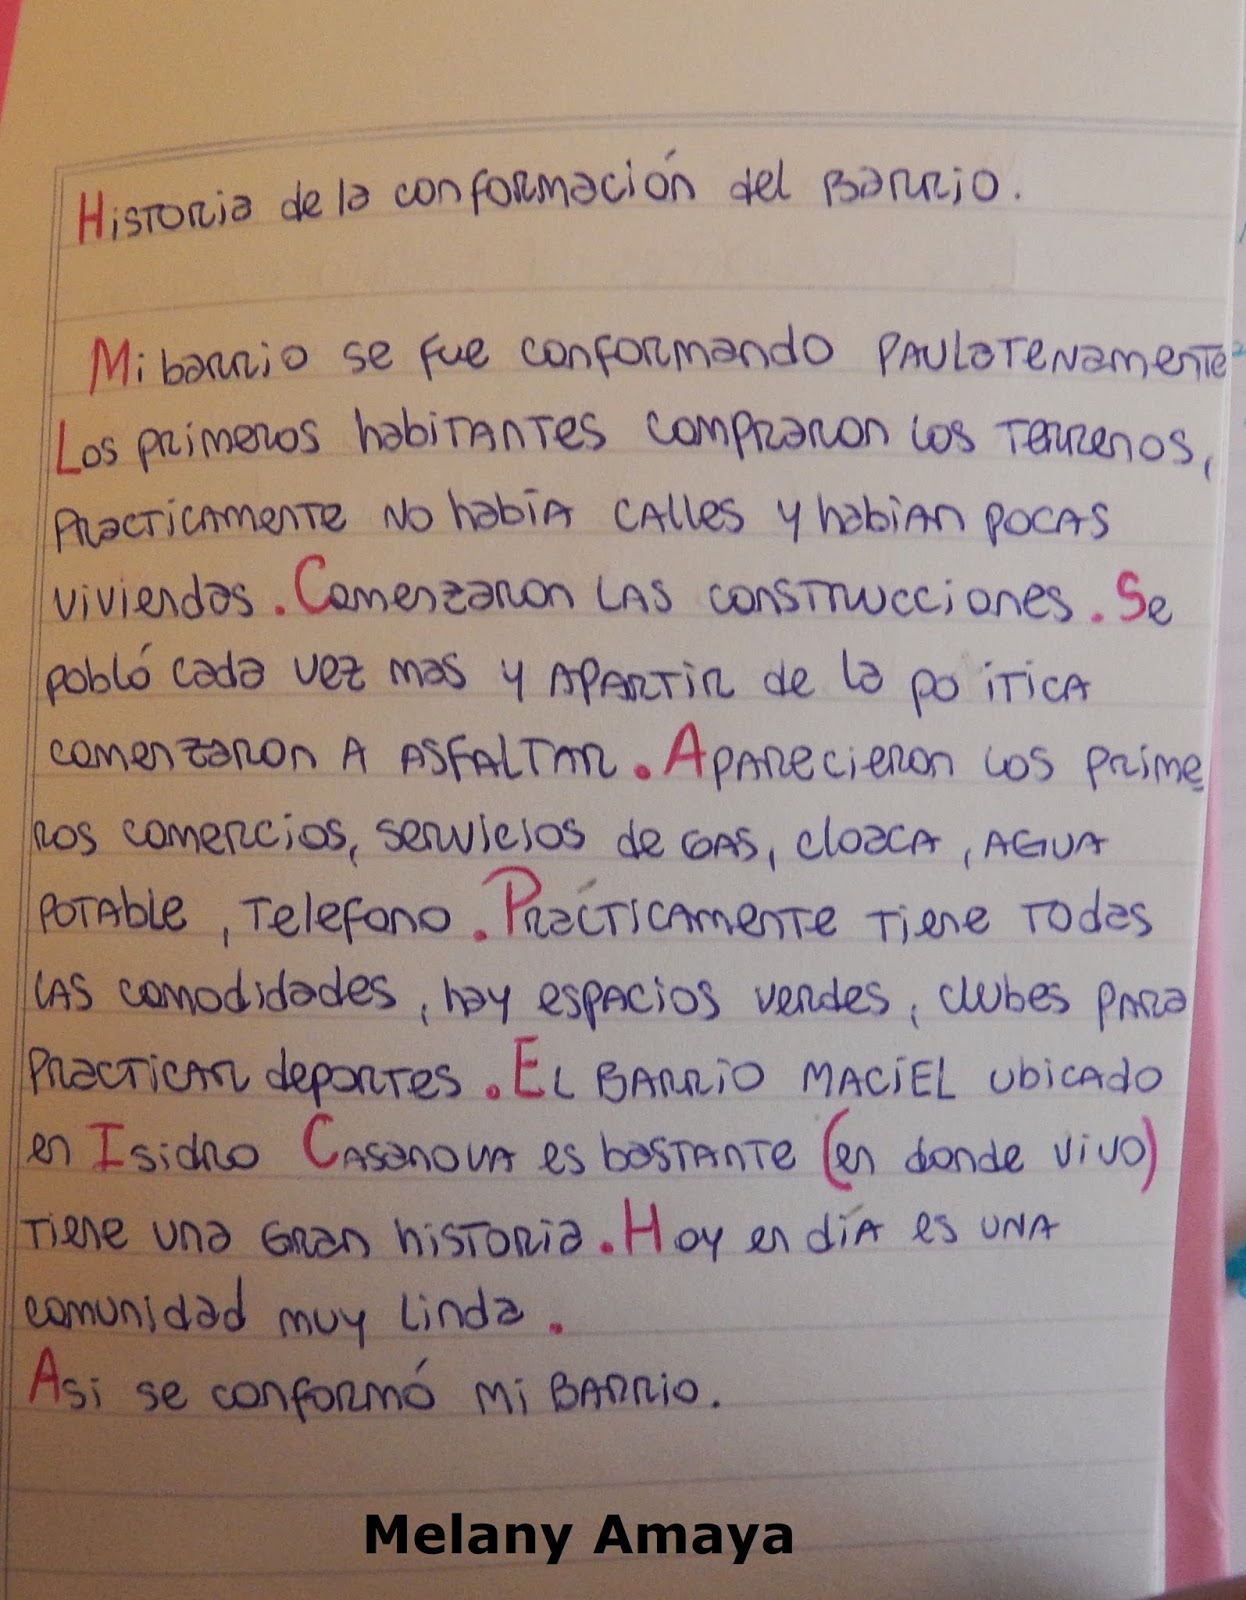 Historia de la conformación del Barrio.
Mi barrio se fue conformando PAULATENAmente
Los primeros habitantes compraron los terrenos,
Practicamente No había calles y habian pocas
viviendas. Comenzaron las construcciones. Se
pobló cada vez mas y apartir de la po itica
comenzaron a asfaltar. Aparecieron los prime
ros comercios, servicios de gas, cloaca, agua
potable, Telefono. Prácticamente tiene todas
las comodidades, hay espacios verdes, clubes para
practicar deportes. El Barrio MACiEL ubicado
en Isidro Casanova es bastante (en donde vivo)
tiene una gran historia. Hoy en día es una
comunidad muy linda.
Asi se conformó mi Barrio.
Melany Amaya